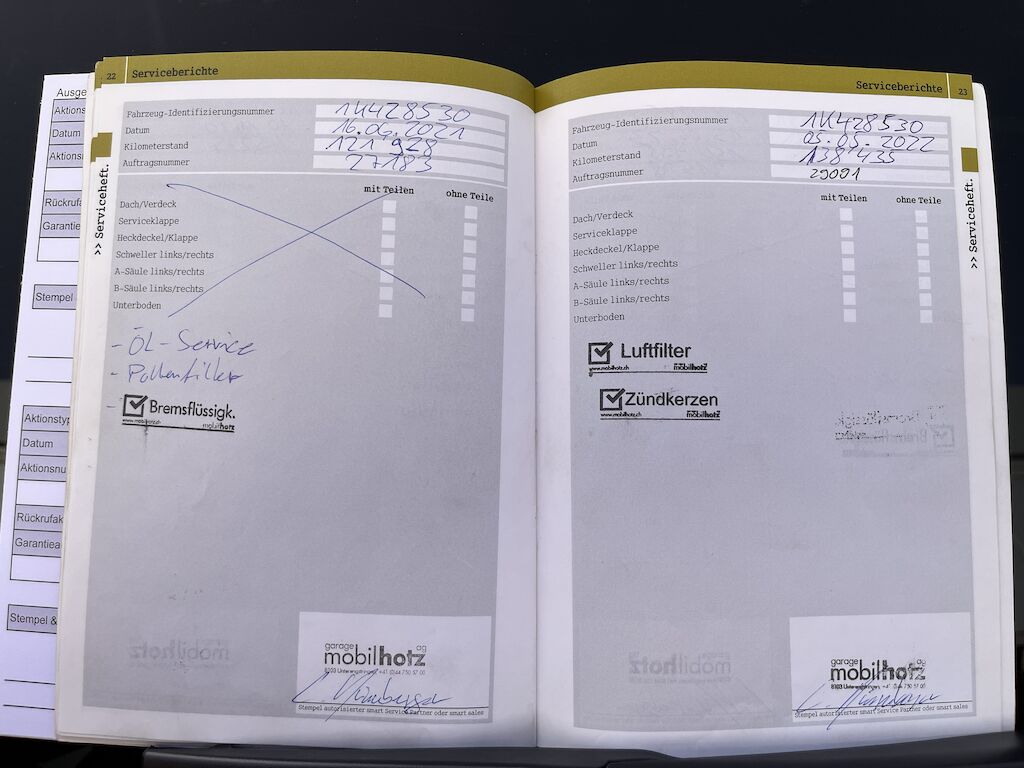 Ausge
Aktions
Datum
Aktions
Rückrufa
Garantie
Stempel
Aktionstyp
Datum
Aktionsnu
Rückrufak
Garantiea
Stempel &
22 Serviceberichte
>> Serviceheft.
Fahrzeug-Identifizierungsnummer 1K428530
Datum 16.09.2021
Kilometerstand 121'928
Auftragsnummer 27183
mit Teilen ohne Teile
Dach/Verdeck
Serviceklappe
Heckdeckel/Klappe
Schweller links/rechts
A-Säule links/rechts
B-Säule links/rechts
Unterboden
- ÖL-Service
- Pollenfilter
- Bremsflüssigk.
www.mobilhotz.ch mobilhotz
garage
mobilhotz ag
Stempel autorisierter smart Service Partner oder smart sales
Serviceberichte 23
>> Serviceheft.
Fahrzeug-Identifizierungsnummer 1K428530
Datum 05.05.2022
Kilometerstand 138'435
Auftragsnummer 29091
mit Teilen ohne Teile
Dach/Verdeck
Serviceklappe
Heckdeckel/Klappe
Schweller links/rechts
A-Säule links/rechts
B-Säule links/rechts
Unterboden
Luftfilter
www.mobilhotz.ch mobilhotz
Zündkerzen
www.mobilhotz.ch mobilhotz
garage
mobilhotz ag
Stempel autorisierter smart Service Partner oder smart sales